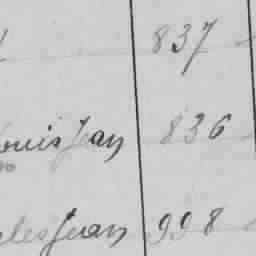 837
ouis Jean 836
les Jean 998